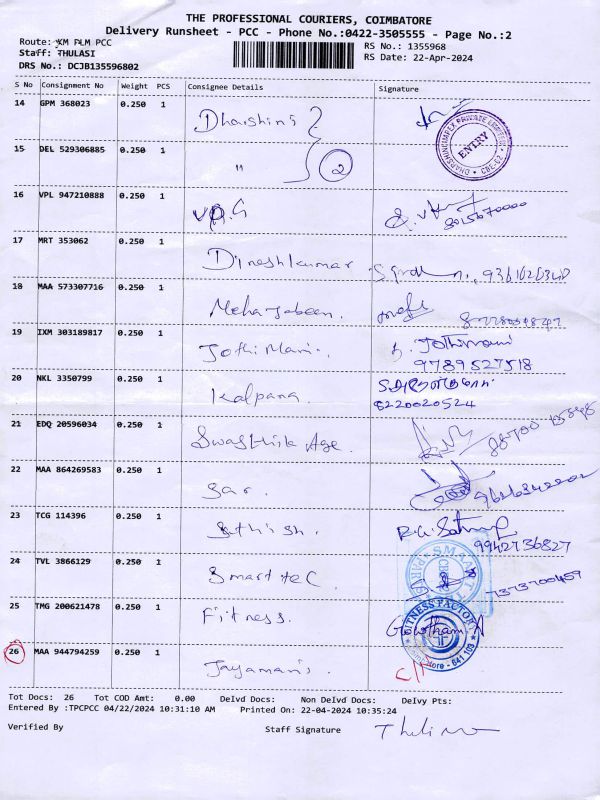 THE PROFESSIONAL COURIERS, COIMBATORE
Delivery Runsheet - PCC - Phone No.:0422-3505555 - Page No.:2
Route: KM PLM PCC
Staff: THULASI
DRS No.: DCJB135596802
RS No.: 1355968
RS Date: 22-Apr-2024
S No Consignment No Weight PCS Consignee Details Signature
14 GPM 368023 0.250 1 Dharshini
DHARSHINI IMPEX PRIVATE LIMITED
ENTRY
CBE-62
15 DEL 529306885 0.250 1 " 2
16 VPL 947210888 0.250 1
17 MRT 353062 0.250 1 Dineshkumar
18 MAA 573307716 0.250 1
19 IXM 303189817 0.250 1 Jothi Mani. Jothimani
9789527518
20 NKL 3350799 0.250 1 Kalpana
8220020524
21 EDQ 20596034 0.250 1 Swasthik Age.
22 MAA 864269583 0.250 1
23 TCG 114396 0.250 1 Sathish.
9942736827
24 TVL 3866129 0.250 1 Smart tec.
7373700459
25 TMG 200621478 0.250 1 Fitness. Gowtham.A
FITNESS FACTORY
26 MAA 944794259 0.250 1 Jayamani.
Tot Docs: 26 Tot COD Amt: 0.00 Delvd Docs: Non Delvd Docs: Delvy Pts:
Entered By :TPCPCC 04/22/2024 10:31:10 AM Printed On: 22-04-2024 10:35:24
Verified By Staff Signature